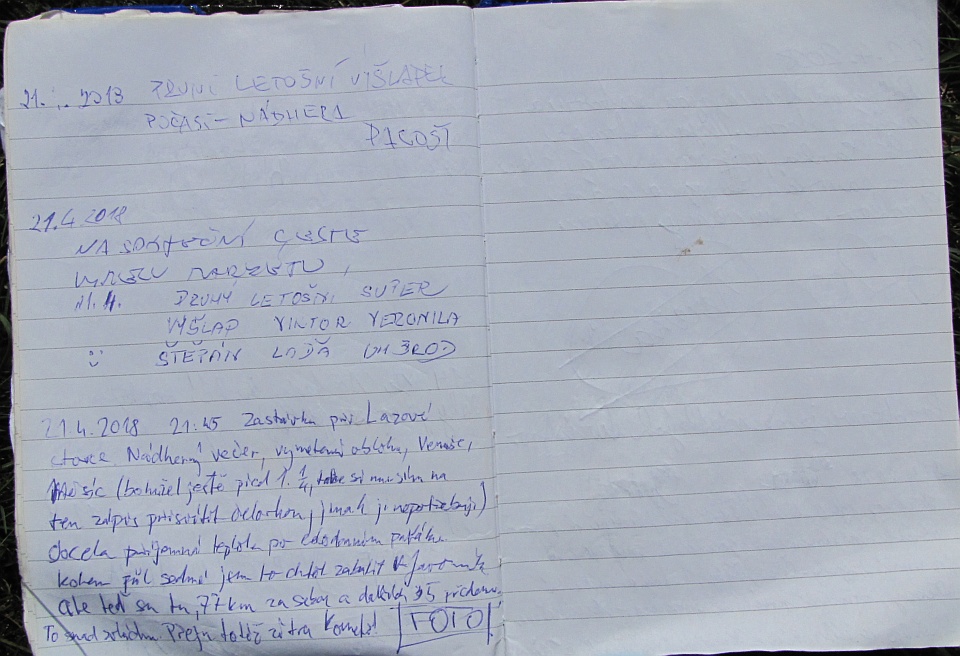 21. 2018 PRVNÍ LETOŠNÍ VÍŠLAPEK
POČASÍ - NÁDHERA
PAGOŠT
21.4.2018
NA CESTĚ
21.4. DRUHÝ LETOŠNÍ SUPER
VÝŠLAP VIKTOR VERONIKA
ŠTĚPÁN LAĎA UH BROD
21.4.2018 21:45 Zastávka při Lazové
stovce Nádherný večer, vymetená obloha, Venuše,
Měsíc (bohužel ještě před 1. 1/4, takže si musím na
ten zápis přisvítit čelovkou, jinak ji nepotřebuji)
docela příjemná teplota po celodenním
kolem půl sedmé jsem to chtěl zabalit
ale teď su tu, 77 km za sebou a dalších 35 předemnou.
To snad zvládnu zítra FOTO